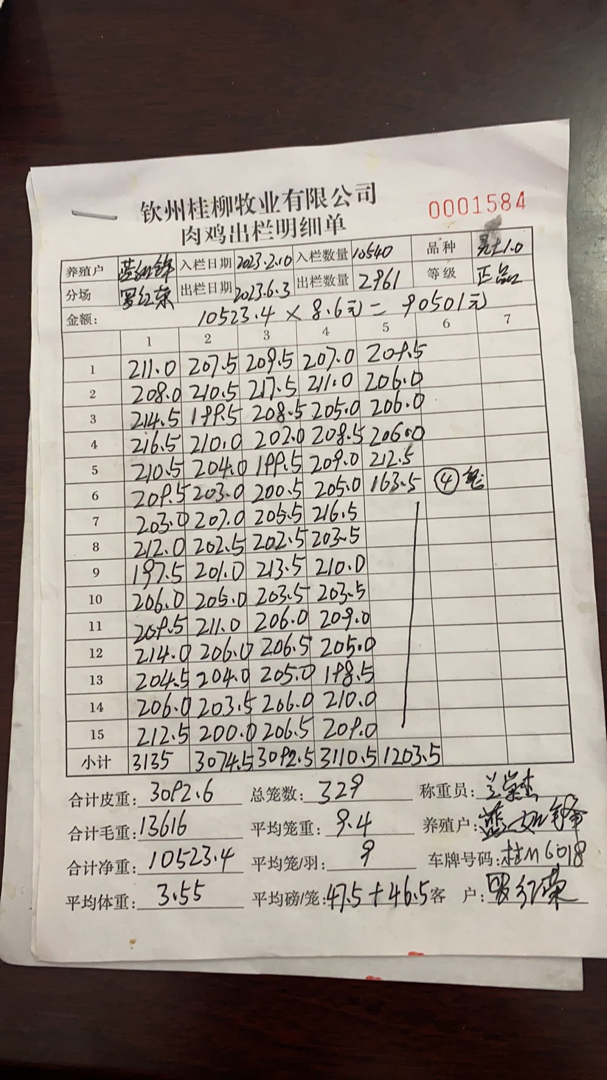 钦州桂柳牧业有限公司
肉鸡出栏明细单 0001584
养殖户 入栏日期 2023.2.10 入栏数量 10540 品种
分场 罗红荣 出栏日期 2023.6.3 出栏数量 2961 等级 正品
金额: 10523.4 × 8.6元 = 90501元
1 2 3 4 5 6 7
1 211.0 207.5 209.5 207.0 209.5
2 208.0 210.5 217.5 211.0 206.0
3 214.5 199.5 208.5 205.0 206.0
4 216.5 210.0 202.0 208.5 206.0
5 210.5 204.0 199.5 209.0 212.5
6 209.5 203.0 200.5 205.0 163.5 ④
7 203.0 207.0 205.5 216.5
8 212.0 202.5 202.5 203.5
9 197.5 201.0 213.5 210.0
10 206.0 205.0 203.5 203.5
11 209.5 211.0 206.0 209.0
12 214.0 206.0 206.5 205.0
13 204.5 204.0 205.0 198.5
14 206.0 203.5 206.0 210.0
15 212.5 200.0 206.5 209.0
小计 3135 3074.5 3092.5 3110.5 1203.5
合计皮重: 3092.6 总笼数: 329 称重员:
合计毛重: 13616 平均笼重: 9.4 养殖户:
合计净重: 10523.4 平均笼/羽: 9 车牌号码: 桂M6018
平均体重: 3.55 平均磅/笼: 47.5+46.5 客户: 罗红荣